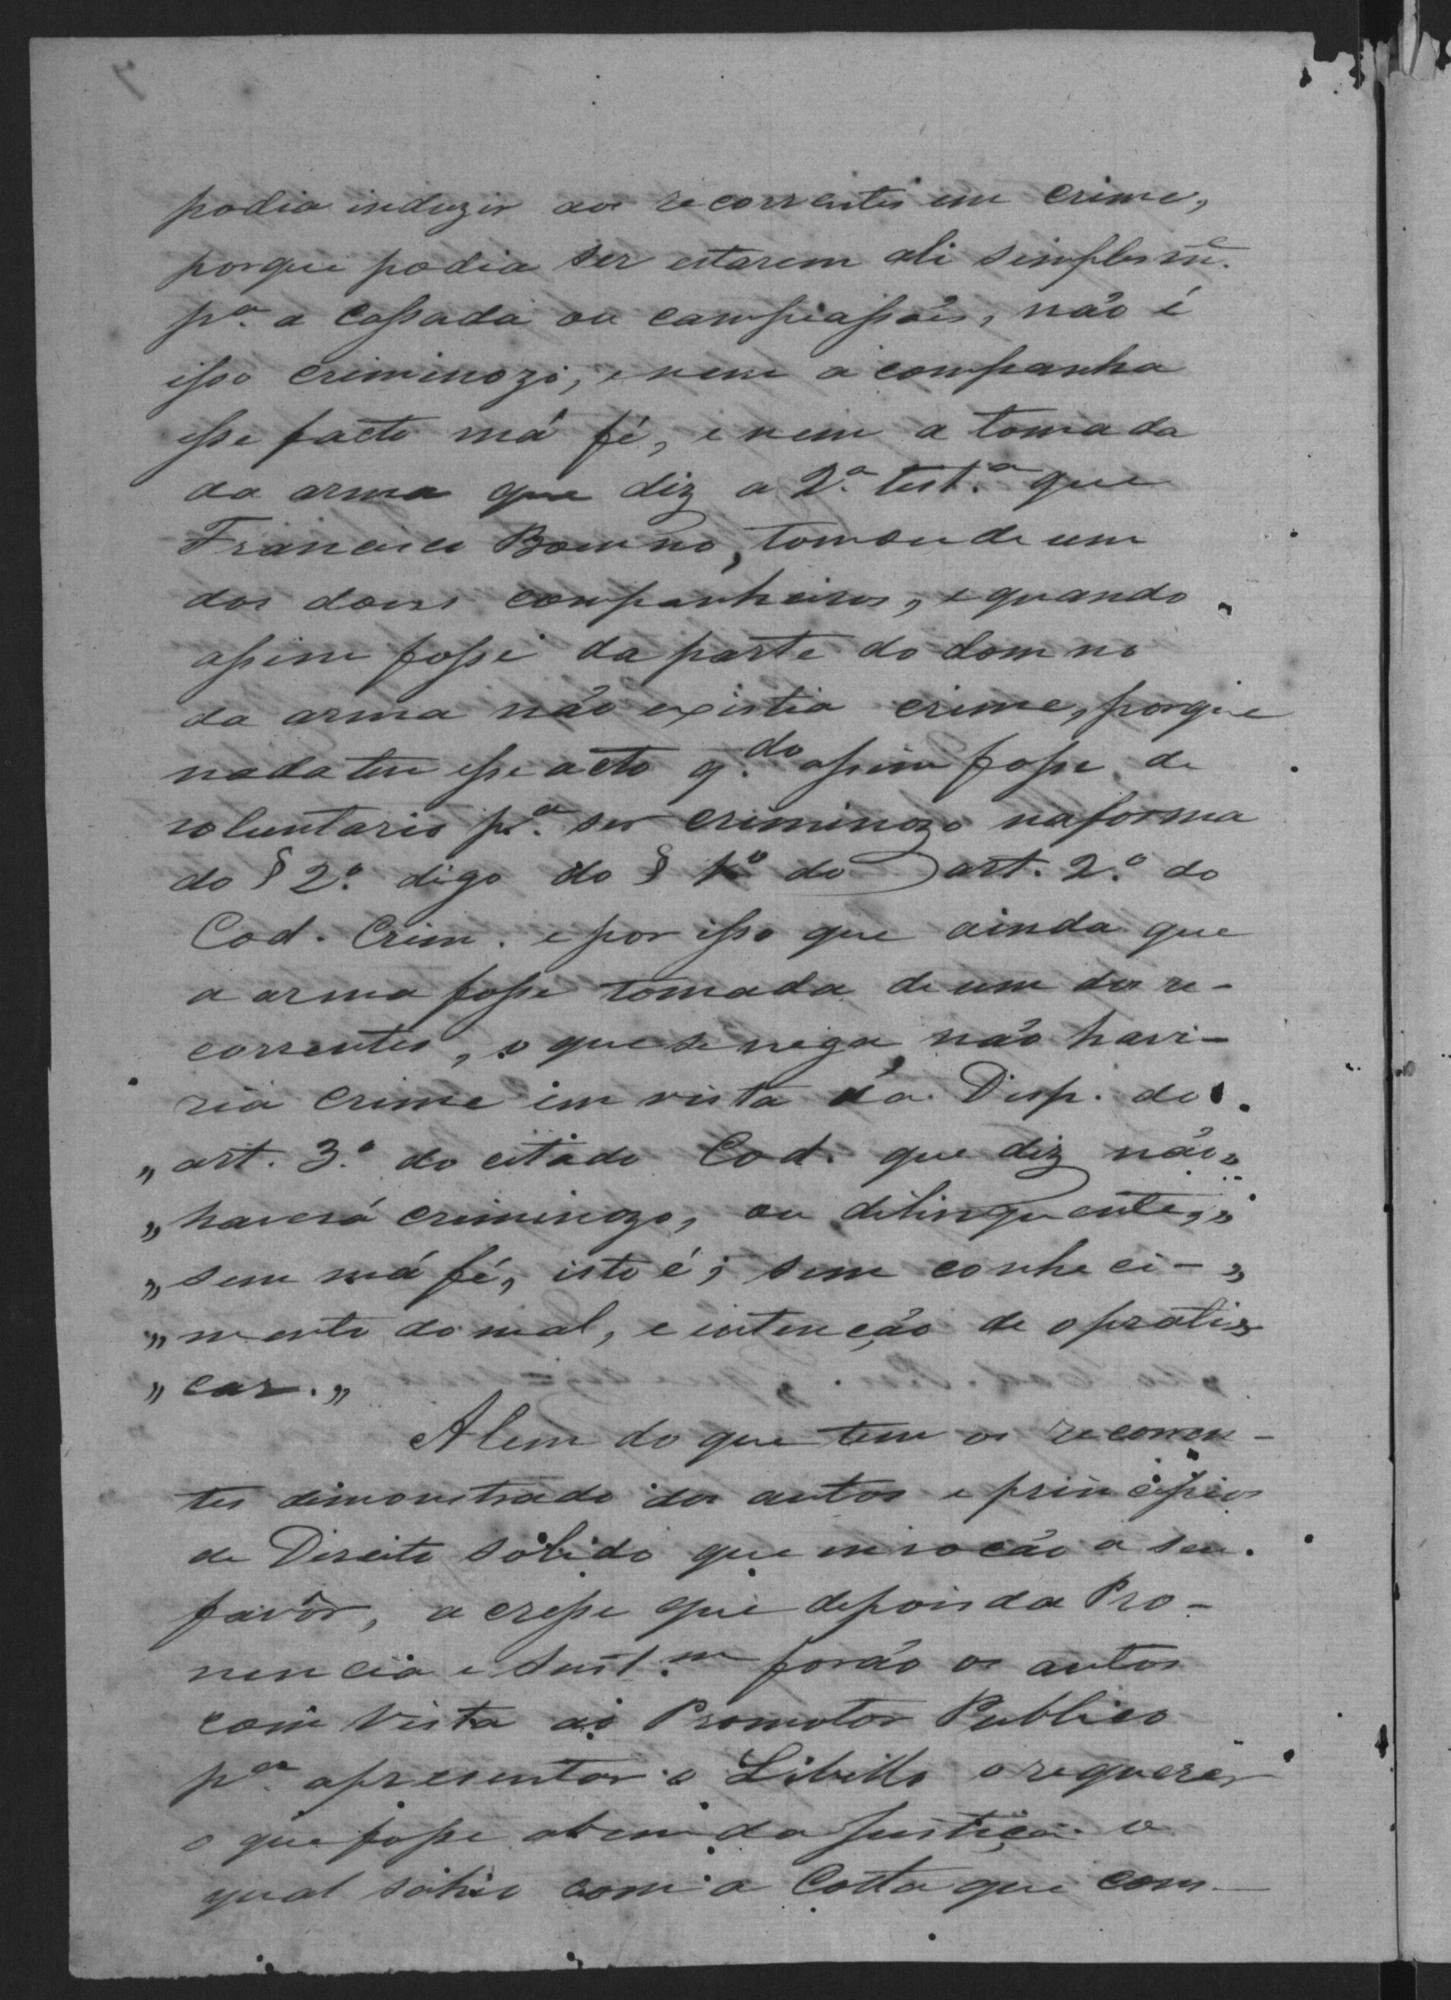 podia induzir aos recorrentes em crime,
porque podia ser estarem ali simplesm.e
p.a a cassada ou campeassões, não é
isso criminozo, e nem acompanha
esse facto má fé, e nem a tomada
da arma que diz a 2.a test.a que
Francisco tomou de um
dos dous companheiros, e quando
assim fosse da parte do domno
da arma não existia crime, porque
nada tem esse acto q.do assim fosse, de
voluntario p.a ser criminozo na forma
do § 2.o digo do § 1o do art. 2.o do
Cod. Crim. e por isso que ainda que
a arma fosse tomada de um dos re-
correntes, o que se nega, não have-
ria crime em vista da Disp. do
„ art. 3.o do citado Cod. que diz não „
„ haverá criminozo, ou delinquente, „
„ sem má fé, isto é, sem conheci- „
„ mento do mal, e intenção de o prati „
„ car. „
Alem do que tem os recorren-
tes dimonstrado dos autos e principios
de Direito solido que invocão a seu
favôr, acresse que depois da Pro-
nuncia e Sust.m forão os autos
com vista ao Promotor Publico
p.a apresentar o Libello o requerer
o que fosse abem da Justiça o
qual sahio com a Cotta que com-